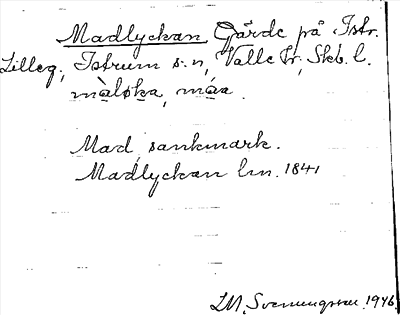 Madlyckan Gärde på Istr.
Lilleg., Istrum s:n, Valle hr, Skb. l.
màløka, máa.
Mad, sankmark.
Madlyckan lm. 1841
LM, Svenungsson 1946.